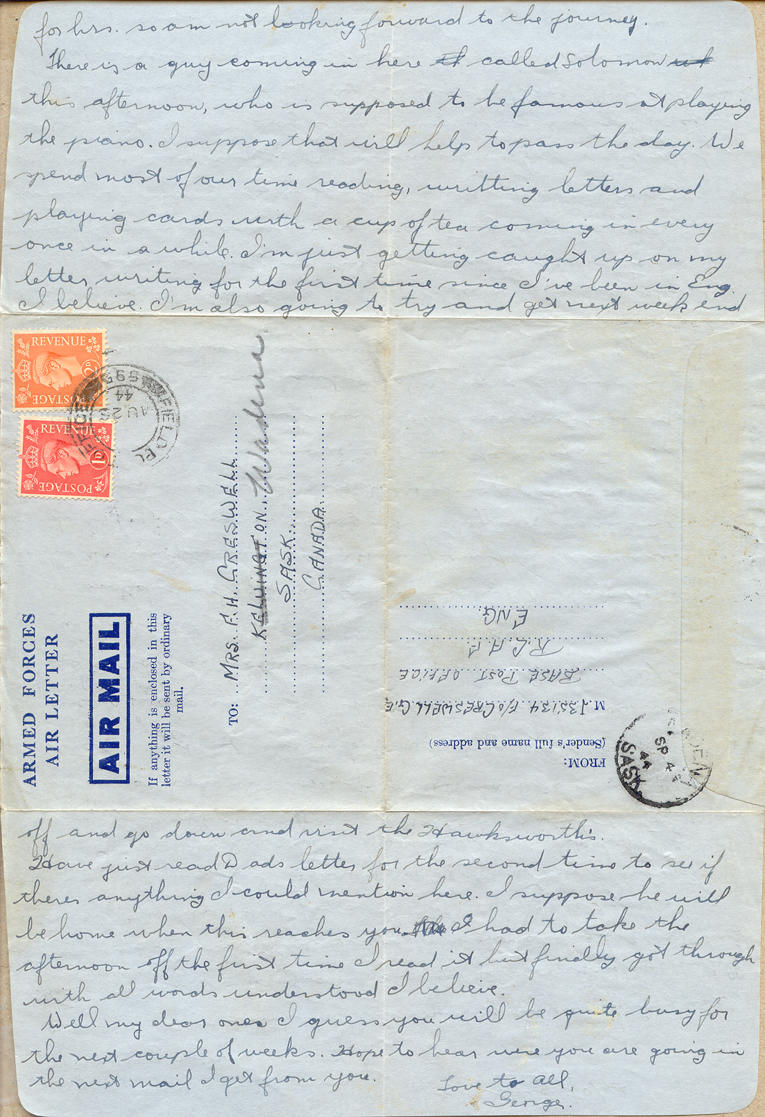 for hrs. so am not looking forward to the journey.
There is a guy coming in here called Solomon
this afternoon, who is supposed to be famous at playing
the piano. I suppose that will help to pass the day. We
spend most of our time reading, writting letters and
playing cards with a cup of tea coming in every
once in a while. I'm just getting caught up on my
letter writing for the first time since I've been in Eng.
I believe. I'm also going to try and get next week end
REVENUE
POSTAGE
REVENUE
1D
POSTAGE
FIELD
AU 28
44
ARMED FORCES
AIR LETTER
AIR MAIL
If anything is enclosed in this
letter it will be sent by ordinary
mail.
TO: MRS. F.H. CRESWELL
KELVINGTON Wadena
SASK.
CANADA
FROM:
(Sender's full name and address)
F/O CRESWELL G.E
BASE POST OFFICE
R.C.A.F.
ENG
SP 4
44
SASK
off and go down and visit the Hawksworth's.
Have just read Dads letter for the second time to see if
theres anything I could mention here. I suppose he will
be home when this reaches you. I had to take the
afternoon off the first time I read it but finally got through
with all words understood I believe.
Well my dear ones I guess you will be quite busy for
the next couple of weeks. Hope to hear were you are going in
the next mail I get from you.
Love to All,
George.